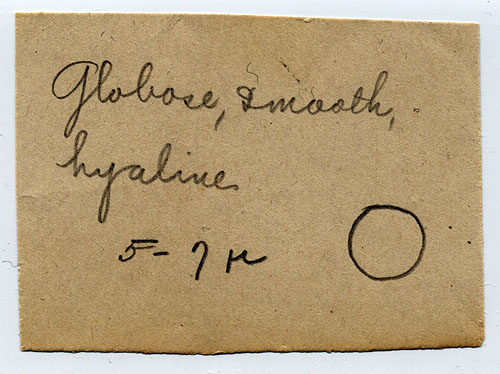 Globose, smooth,
hyaline
5-7 µ